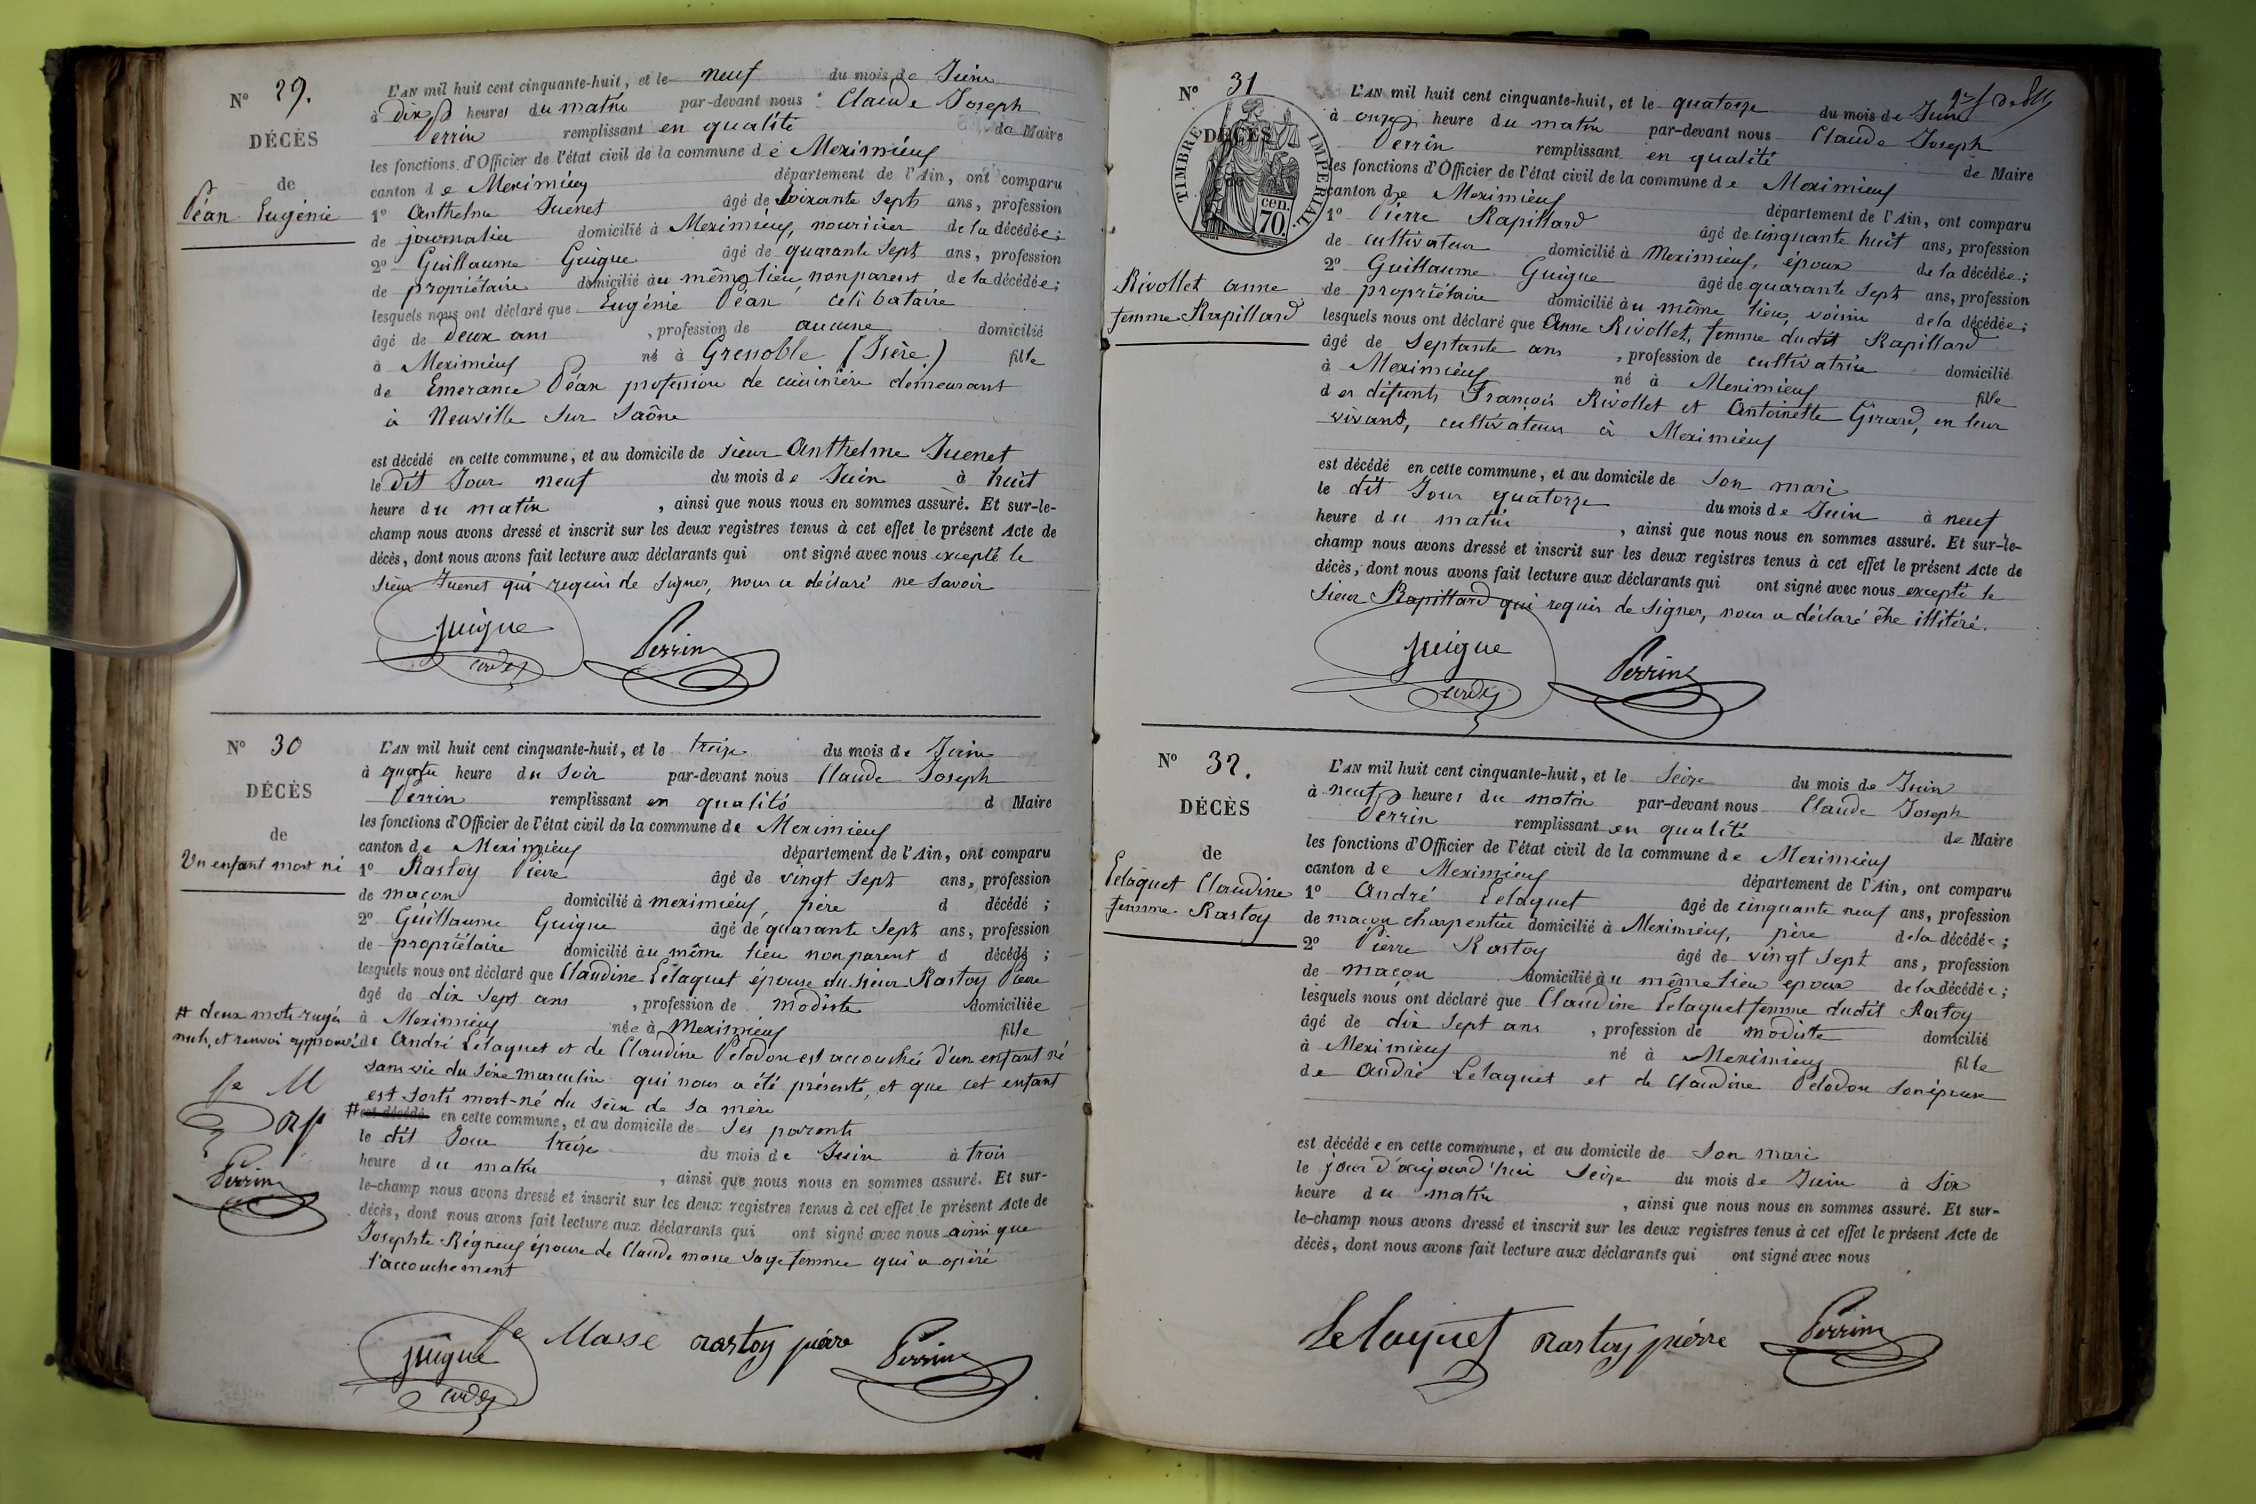 N° 29.
DÉCÈS
de
Péan Eugénie
L'AN mil huit cent cinquante-huit, et le neuf du mois de Juin
à dix heures du matin par-devant nous Claude Joseph
Perrin remplissant en qualité de Maire
les fonctions d'Officier de l'état civil de la commune de Meximieux
canton de Meximieux département de l'Ain, ont comparu
1° Anthelme Juenet âgé de soixante sept ans, profession
de journalier domicilié à Meximieux, nourricier de la décédée;
2° Guillaume Guigue âgé de quarante sept ans, profession
de propriétaire domicilié au même lieu, non parent de la décédée;
lesquels nous ont déclaré que Eugénie Péan célibataire
âgé de deux ans , profession de aucune domicilié
à Meximieux né à Grenoble (Isère) fille
de Emerance Péan profession de cuisinière demeurant
à Neuville sur Saône
est décédé en cette commune, et au domicile de sieur Anthelme Juenet
le dit Jour neuf du mois de Juin à huit
heure du matin , ainsi que nous nous en sommes assuré. Et sur-le-
champ nous avons dressé et inscrit sur les deux registres tenus à cet effet le présent Acte de
décès, dont nous avons fait lecture aux déclarants qui ont signé avec nous excepté le
sieur Juenet qui requis de signer, nous a déclaré ne savoir
Guigue Perrin
N° 30
DÉCÈS
de
Un enfant mort né
L'AN mil huit cent cinquante-huit, et le treize du mois de Juin
à quatre heure du soir par-devant nous Claude Joseph
Perrin remplissant en qualité d Maire
les fonctions d'Officier de l'état civil de la commune de Meximieux
canton de Meximieux département de l'Ain, ont comparu
1° Rastoy Pierre âgé de vingt sept ans, profession
de maçon domicilié à meximieux, père d décédé ;
2° Guillaume Guigue âgé de quarante sept ans, profession
de propriétaire domicilié au même lieu non parent d décédé ;
lesquels nous ont déclaré que Claudine Lelaquet épouse du sieur Rastoy Pierre
âgé de dix sept ans , profession de modiste domiciliée
à Meximieux née à Meximieux fille
de André Lelaquet et de Claudine Pelodon est accouchée d'un enfant né
sans vie du sexe masculin qui nous a été présenté, et que cet enfant
est sorti mort-né du sein de sa mère
# est décédé en cette commune, et au domicile de ses parents
le dit Jour treize du mois de Juin à trois
heure du matin , ainsi que nous nous en sommes assuré. Et sur-
le-champ nous avons dressé et inscrit sur les deux registres tenus à cet effet le présent Acte de
décès, dont nous avons fait lecture aux déclarants qui ont signé avec nous ainsi que
Josephte Régneux épouse de Claude masse sage femme qui a opéré
l'accouchement
# deux mots rayés
nuls, et renvoi approuvé
fe M
Perrin
Guigue fe Masse rastoy pierre Perrin
N° 31
DÉCÈS
de
TIMBRE IMPERIAL
70 cen.
Rivollet anne
femme Rapillard
L'AN mil huit cent cinquante-huit, et le quatorze du mois de Juin
à onze heure du matin par-devant nous Claude Joseph
Perrin remplissant en qualité de Maire
les fonctions d'Officier de l'état civil de la commune de Meximieux
canton de Meximieux département de l'Ain, ont comparu
1° Pierre Rapillard âgé de cinquante huit ans, profession
de cultivateur domicilié à Meximieux, époux de la décédée;
2° Guillaume Guigue âgé de quarante sept ans, profession
de propriétaire domicilié au même lieu, voisin de la décédée;
lesquels nous ont déclaré que Anne Rivollet, femme dudit Rapillard
âgé de septante ans , profession de cultivatrice domicilié
à Meximieux né à Meximieux fille
des défunts François Rivollet et Antoinette Girard, en leur
vivant, cultivateurs à Meximieux
est décédé en cette commune, et au domicile de son mari
le dit Jour quatorze du mois de Juin à neuf
heure du matin , ainsi que nous nous en sommes assuré. Et sur-le-
champ nous avons dressé et inscrit sur les deux registres tenus à cet effet le présent Acte de
décès, dont nous avons fait lecture aux déclarants qui ont signé avec nous excepté le
sieur Rapillard qui requis de signer, nous a déclaré être illitéré.
Guigue Perrin
N° 32.
DÉCÈS
de
Lelaquet Claudine
femme Rastoy
L'AN mil huit cent cinquante-huit, et le seize du mois de Juin
à neuf heures du matin par-devant nous Claude Joseph
Perrin remplissant en qualité de Maire
les fonctions d'Officier de l'état civil de la commune de Meximieux
canton de Meximieux département de l'Ain, ont comparu
1° André Lelaquet âgé de cinquante neuf ans, profession
de maçon charpentier domicilié à Meximieux, père de la décédée;
2° Pierre Rastoy âgé de vingt sept ans, profession
de maçon domicilié au même lieu époux de la décédée;
lesquels nous ont déclaré que Claudine Lelaquet femme dudit Rastoy
âgé de dix sept ans , profession de modiste domicilié
à Meximieux né à Meximieux fille
de André Lelaquet et de Claudine Pelodon son épouse
est décédée en cette commune, et au domicile de son mari
le jour d'aujourd'hui seize du mois de Juin à six
heure du matin , ainsi que nous nous en sommes assuré. Et sur-
le-champ nous avons dressé et inscrit sur les deux registres tenus à cet effet le présent Acte de
décès, dont nous avons fait lecture aux déclarants qui ont signé avec nous
Lelaquet rastoy pierre Perrin